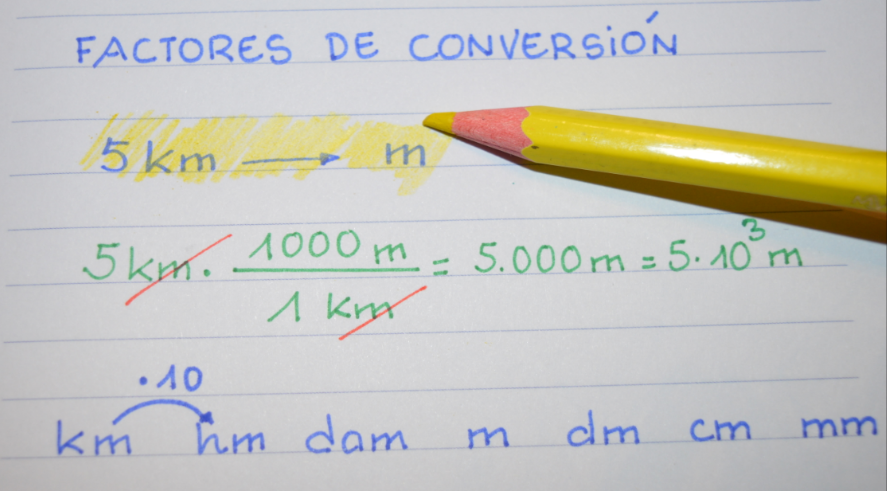 FACTORES DE CONVERSIÓN
5 km → m
5 km · 1000 m / 1 km = 5.000 m = 5·10³ m
·10
km hm dam m dm cm mm